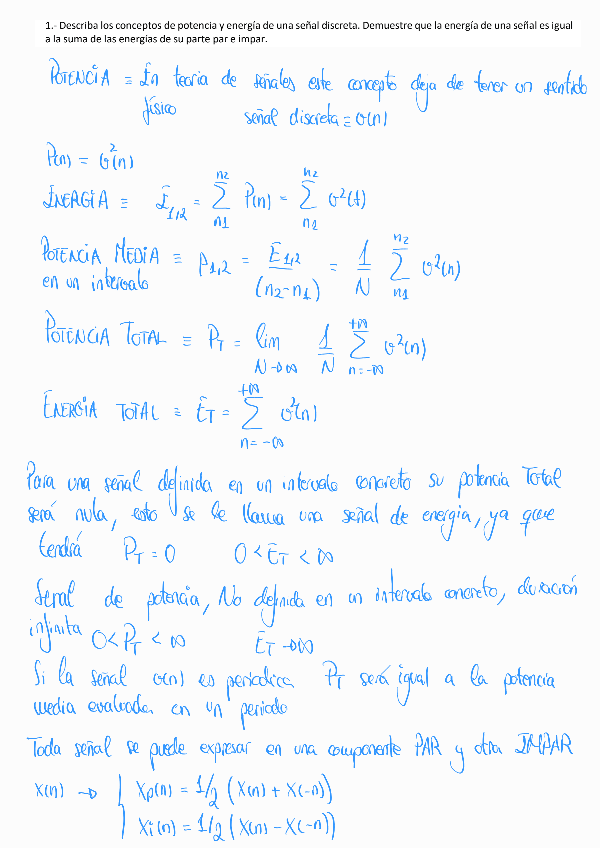 1.- Describa los conceptos de potencia y energía de una señal discreta. Demuestre que la energía de una señal es igual
a la suma de las energías de su parte par e impar.
POTENCIA ≡ En teoria de señales este concepto deja de tener un sentido
físico señal discreta ≡ v(n)
P(n) = v²(n)
ENERGIA ≡ E₁,₂ = ∑_{n1}^{n2} P(n) = ∑_{n1}^{n2} v²(t)
POTENCIA MEDIA ≡ P₁,₂ = E₁,₂ / (n₂-n₁) = 1/N ∑_{n1}^{n2} v²(n)
en un intervalo
POTENCIA TOTAL ≡ P_T = lim_{N→∞} 1/N ∑_{n=-∞}^{+∞} v²(n)
ENERGIA TOTAL ≡ E_T = ∑_{n=-∞}^{+∞} v²(n)
Para una señal definida en un intervalo concreto su potencia Total
será nula, esto se le llama una señal de energia, ya que
tendrá P_T = 0 0 < E_T < ∞
Señal de potencia, No definida en un intervalo concreto, duración
infinita 0 < P_T < ∞ E_T → ∞
Si la señal v(n) es periodica P_T será igual a la potencia
media evaluada en un periodo
Toda señal se puede expresar en una componente PAR y otra IMPAR
X(n) → { Xp(n) = 1/2 (X(n) + X(-n))
Xi(n) = 1/2 (X(n) - X(-n))